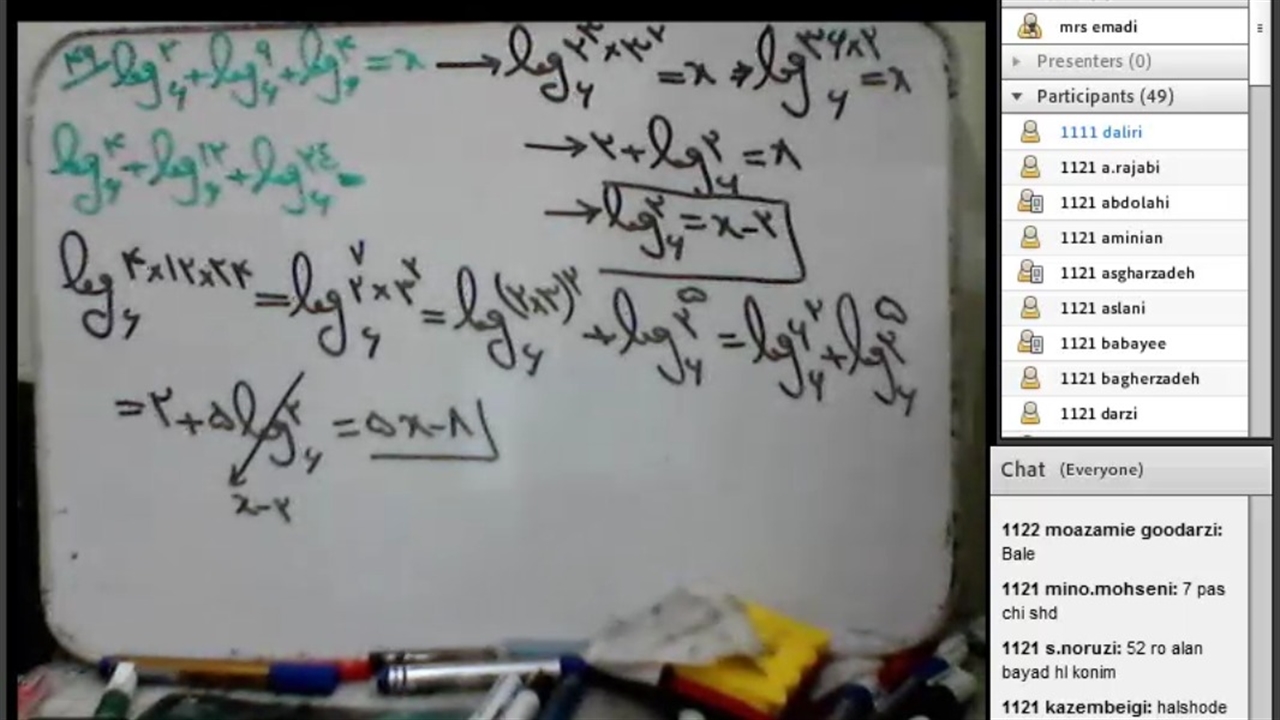 log₆^۲ + log₆^۹ + log₆^۴ = x → log₆^{۲^۳×۳^۲} = x → log₆^{۳۶×۲} = x
→ ۲ + log₆^۲ = x
log₆^۴ + log₆^۱۲ + log₆^۲۴ =
→ log₆^۲ = x-۲
log₆^{۴×۱۲×۲۴} = log₆^{۲^۷×۳^۲} = log₆^{(۲×۳)^۲} + log₆^{۲^۵} = log₆^{۶^۲} + log₆^{۲^۵}
= ۲ + ۵log₆^۲ = ۵x-۸
x-۲
mrs emadi
Presenters (0)
Participants (49)
1111 daliri
1121 a.rajabi
1121 abdolahi
1121 aminian
1121 asgharzadeh
1121 aslani
1121 babayee
1121 bagherzadeh
1121 darzi
Chat (Everyone)
1122 moazamie goodarzi:
Bale
1121 mino.mohseni: 7 pas
chi shd
1121 s.noruzi: 52 ro alan
bayad hl konim
1121 kazembeigi: halshode